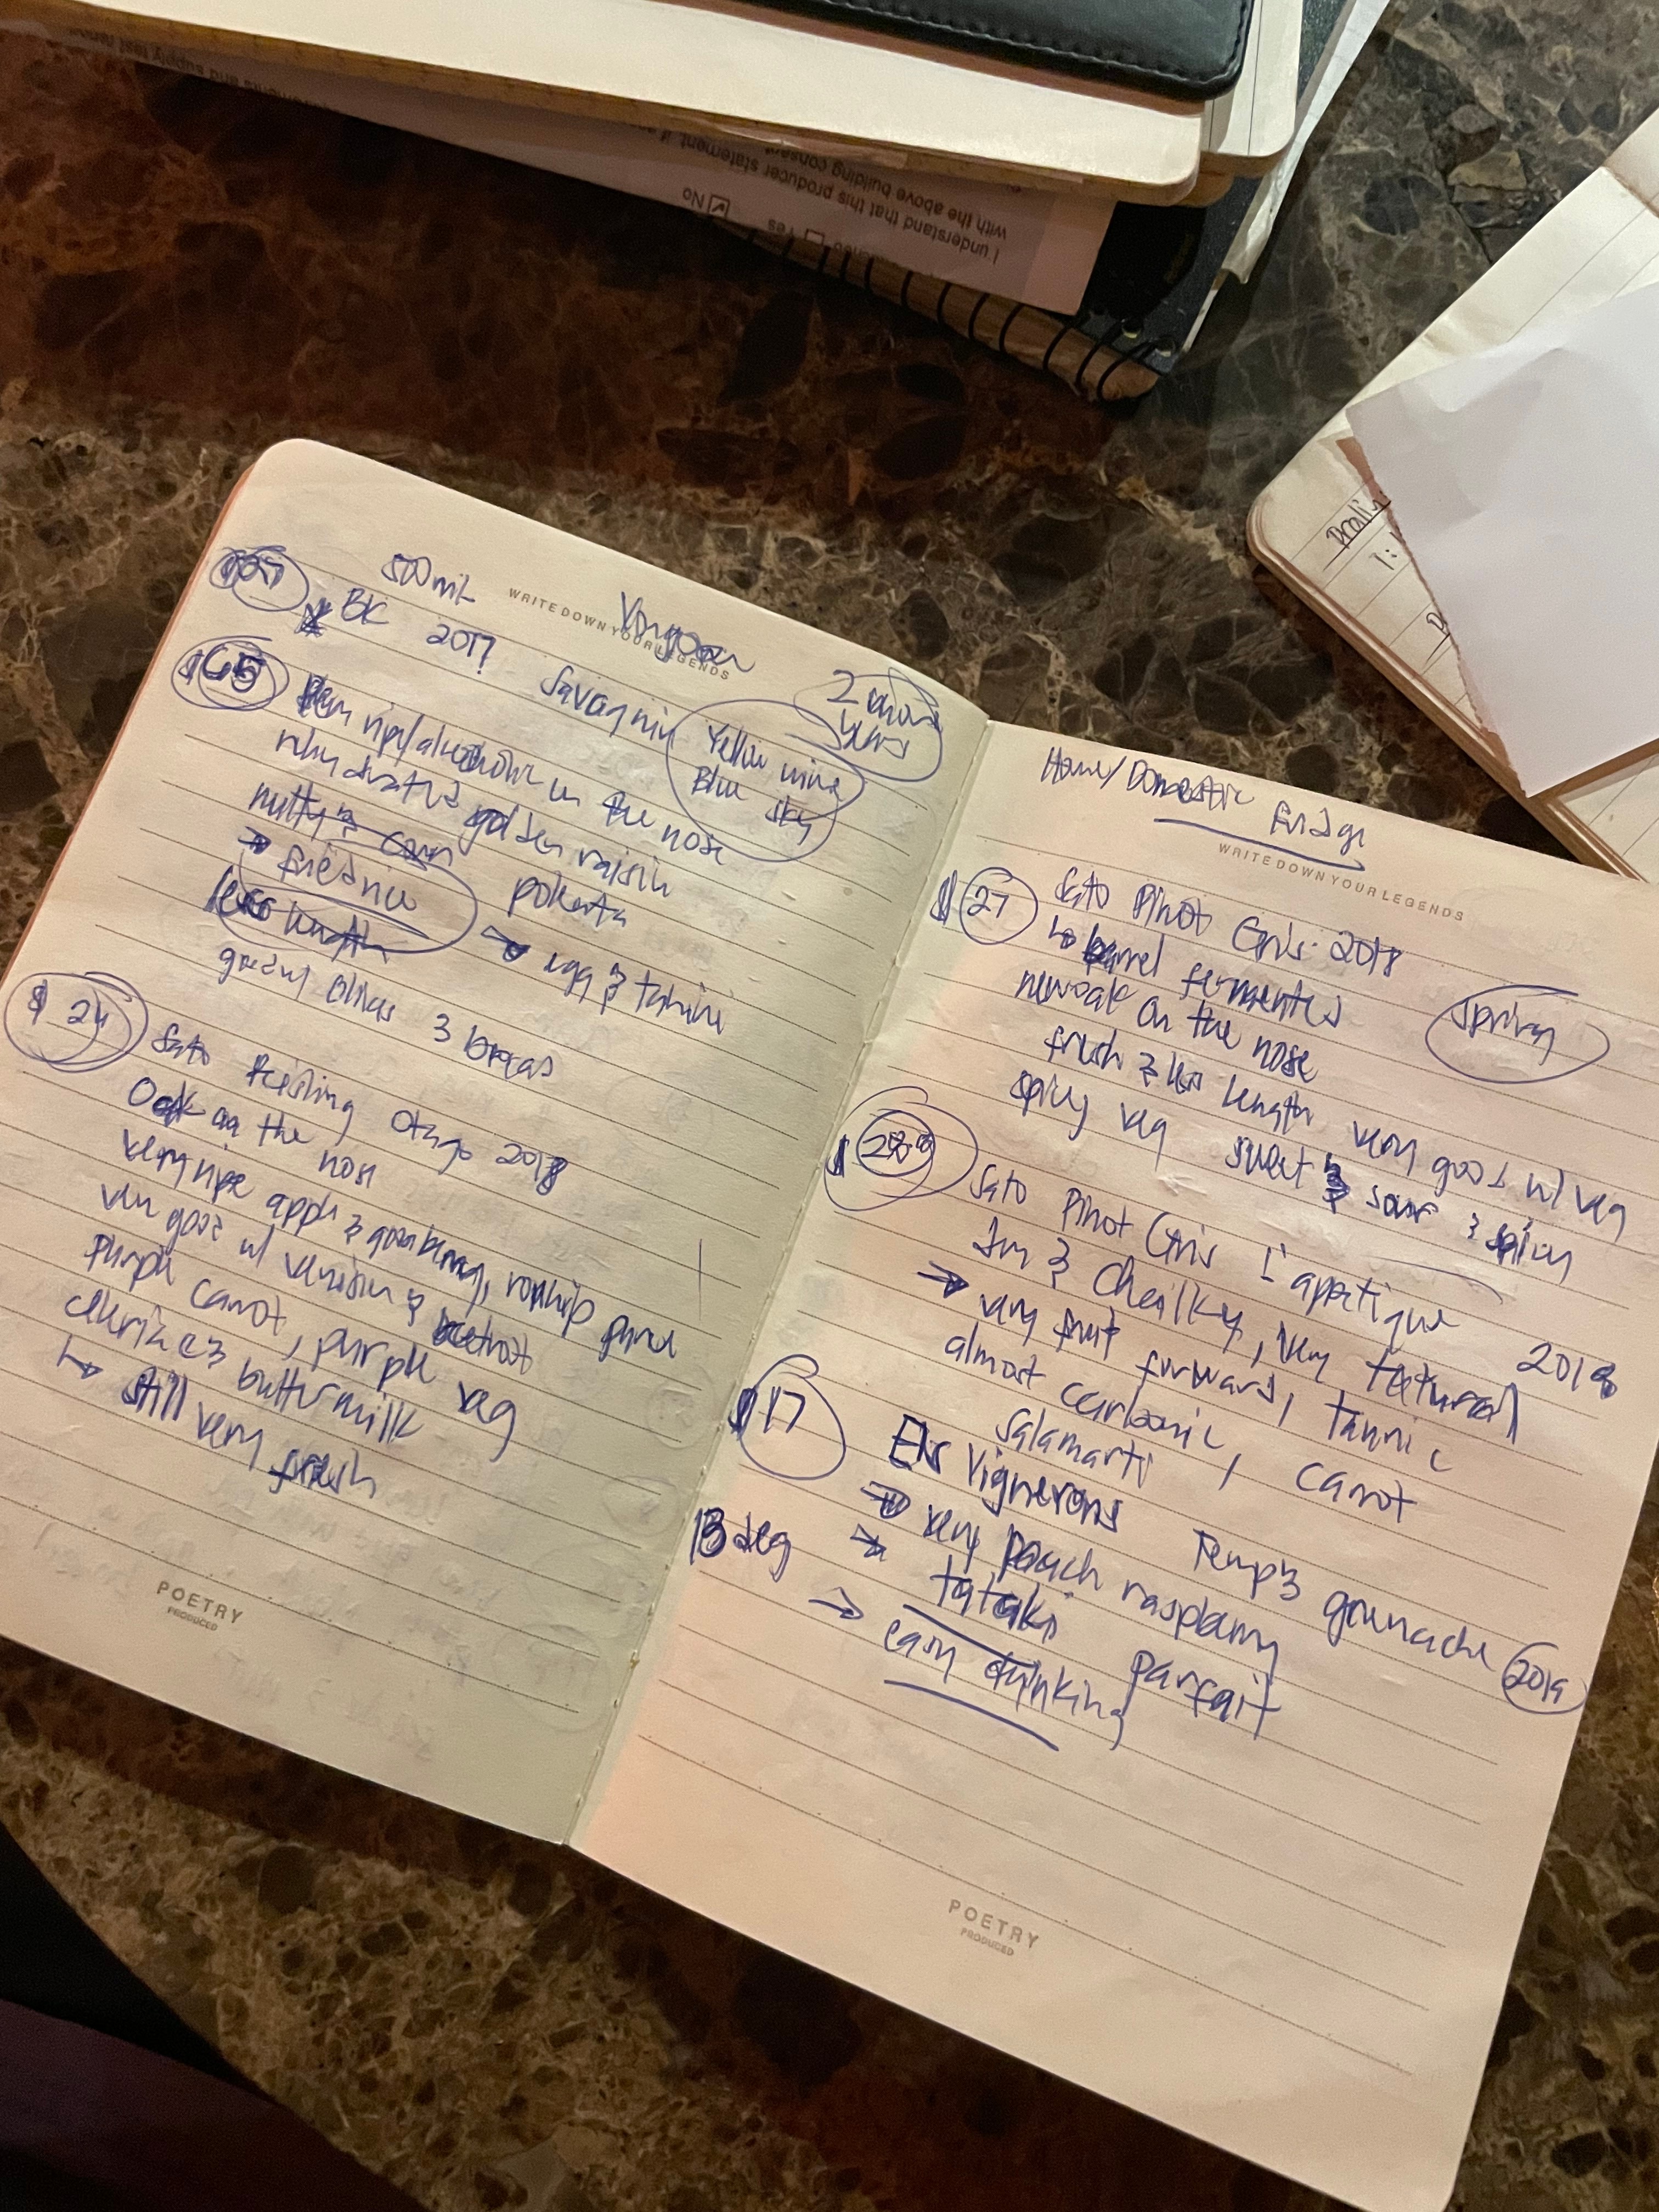 requirements and supply test
I understand that this producer statement, if
with the above building consent
Yes
No
500ml
WRITE DOWN YOUR LEGENDS
BK 2017 Savagnin
2 more years
Yellow wine
Blue sky
$65
on the nose
rehydrated golden raisin
nutty & corn
→ fried rice
polenta
less length
→ egg & tahini
greasy olives 3 breads
$24
Sato Riesling Otago 2018
Oak on the nose
very ripe apple & gooseberry, rosehip puree
very good w/ venison & beetroot
purple carrot, purple veg
celeriac & buttermilk
↳ still very fresh
POETRY
PRODUCED
Home/Domestic Fridge
WRITE DOWN YOUR LEGENDS
$27
Sato Pinot Gris 2018
↳ barrel fermented
new oak on the nose
Spring
fresh & less length very good w/ veg
spicy veg sweet & sour & spicy
$28
Sato Pinot Gris L'appetique 2018
Dry & Chalky, very textured
→ very fruit forward, tannic
almost carbonic, carrot
$17
Vignerons Temp & grenache 2019
→ very peach raspberry
13 deg
→ tataki parfait
→ easy drinking
POETRY
PRODUCED